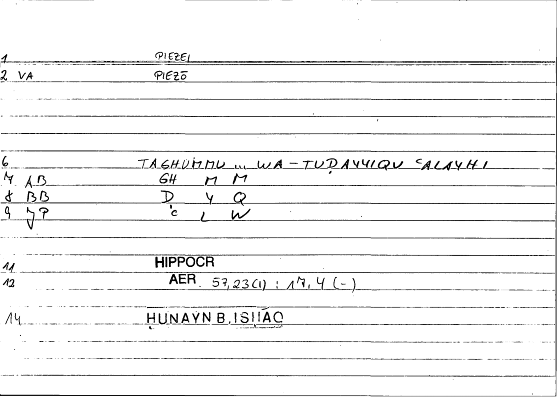 1 PIEZEI
2 VA PIEZŌ
6 TAGHUMMU ... WA-TUḌAYYIQU ᶜALAYHI
7 AB GH M M
8 BB Ḍ Y Q
9 JP ᶜ L W
11 HIPPOCR
12 AER 57,23(1) : 17,4 (-)
14 ḤUNAYN B. ISḤĀQ